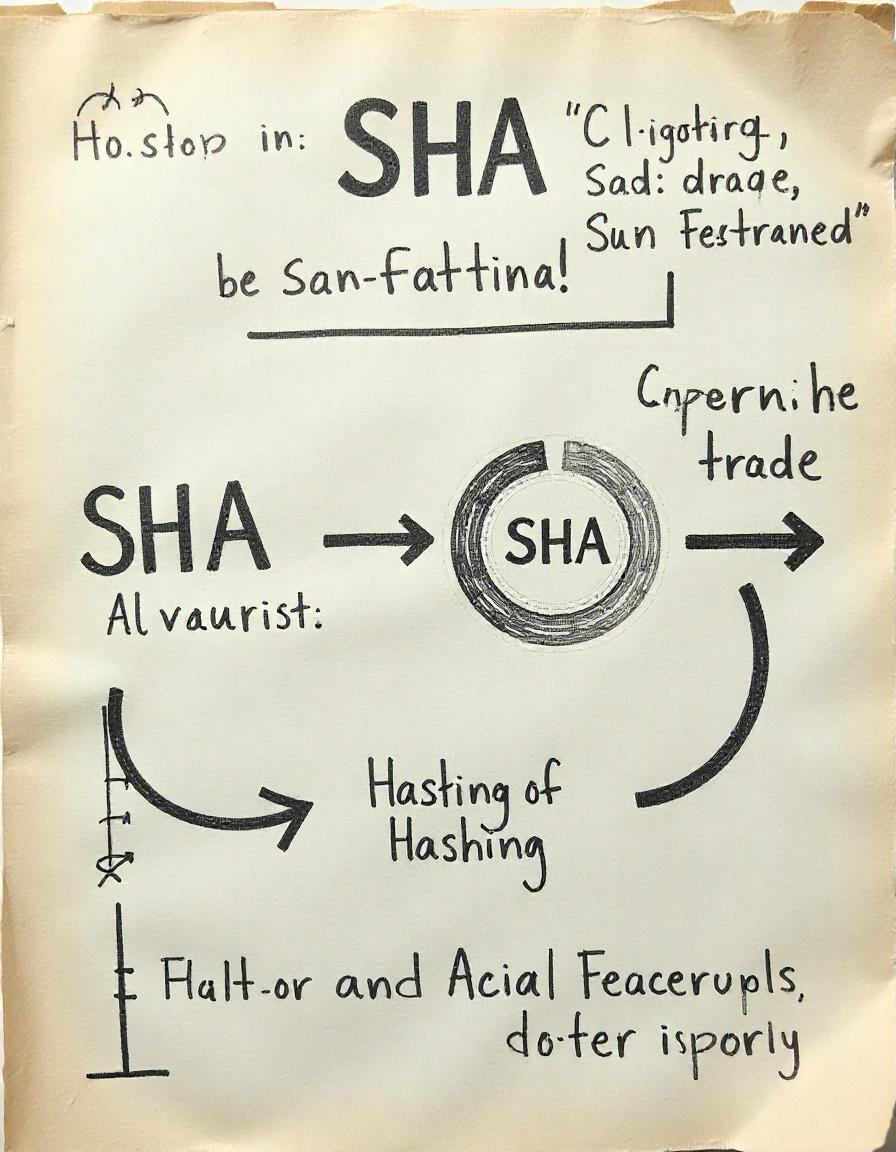 Ho.stop in: SHA "Cl·igotirg,
Sad: drage,
Sun Festraned"
be San-fattina!
Cnperni he
trade
SHA → SHA →
Alvaurist:
Hasting of
Hashing
Flalt-or and Acial Feacerupls,
do·ter isporly